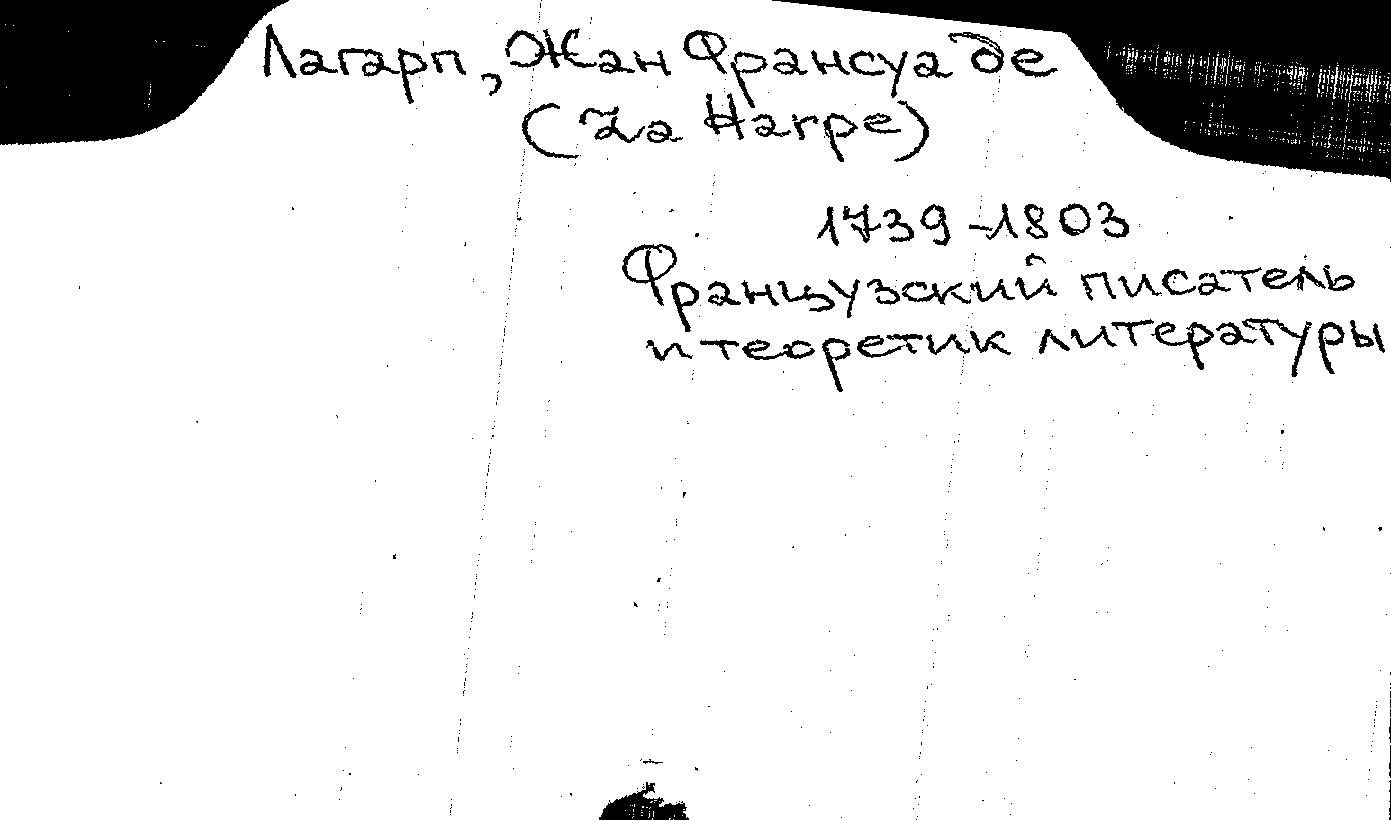 Лагарп, Жан Франсуа де
(La Harpe)
1739-1803
Французский писатель
и теоретик литературы